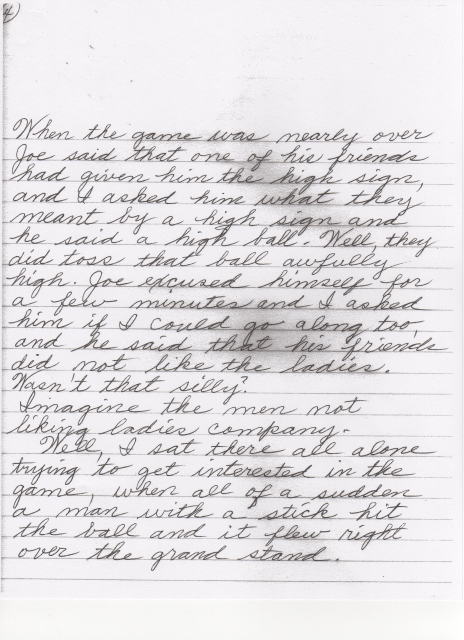 4)
When the game was nearly over
Joe said that one of his friends
had given him the high sign,
and I asked him what they
meant by a high sign and
he said a high ball. Well, they
did toss that ball awfully
high. Joe excused himself for
a few minutes and I asked
him if I could go along too,
and he said that his friends
did not like the ladies.
Wasn't that silly?
Imagine the men not
liking ladies company.
Well, I sat there all alone
trying to get interested in the
game, when all of a sudden
a man with a stick hit
the ball and it flew right
over the grand stand.